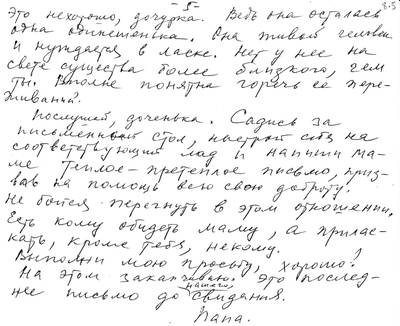 - 5 -
8.5
это нехорошо, дочурка. Ведь она осталась
одна одинешенька. Она живой человек
и нуждается в ласке. Нет у нее на
свете существа более близкого, чем
ты. Вполне понятна горечь ее пере-
живаний.
Послушай, доченька. Садись за
письменный стол, настрой себя на
соответствующий лад и напиши ма-
ме теплое-претеплое письмо, приз-
вав на помощь всю свою доброту.
Не бойся перегнуть в этом отношении.
Есть кому обидеть маму, а прилас-
кать, кроме тебя, некому.
Выполни мою просьбу, хорошо?
На этом заканчиваю. Это послед-
нее письмо до нашего свидания.
Папа.